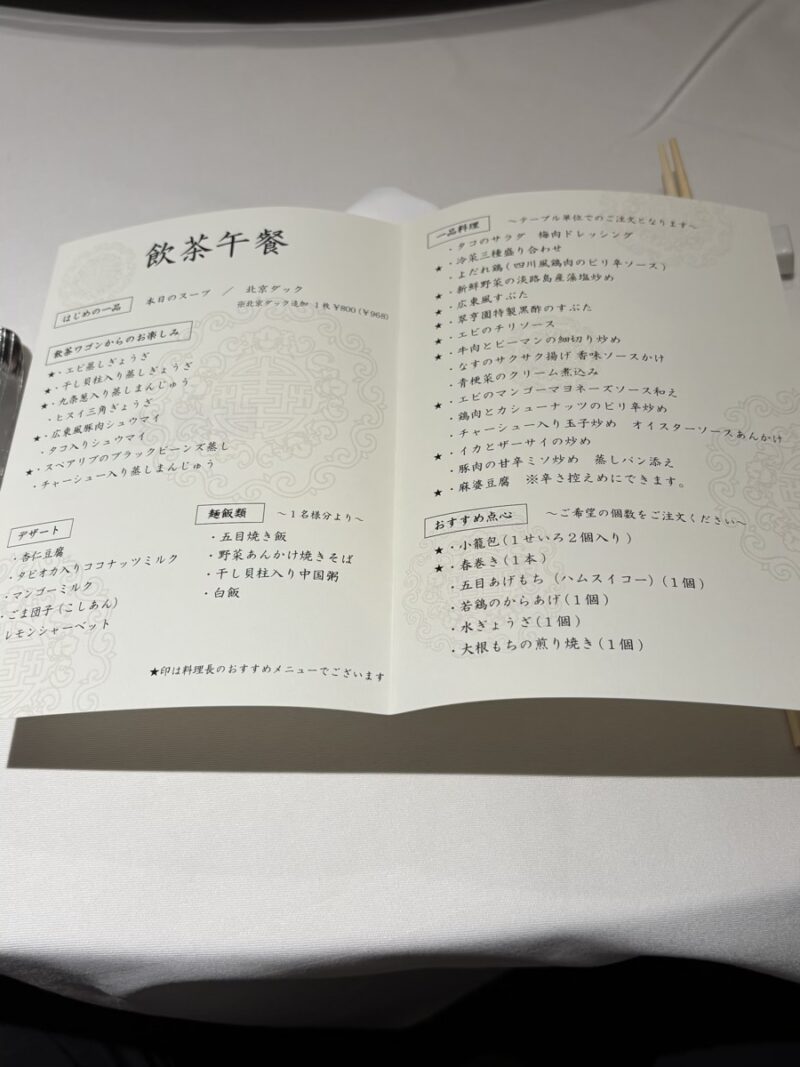 飲茶午餐
はじめの一品 本日のスープ / 北京ダック
※北京ダック追加 1枚¥800(¥968)
飲茶ワゴンからのお楽しみ
★・エビ蒸しぎょうざ
★・干し貝柱入り蒸しぎょうざ
★・九条葱入り蒸しまんじゅう
・ヒスイ三角ぎょうざ
★・広東風豚肉シュウマイ
・タコ入りシュウマイ
★・スペアリブのブラックビーンズ蒸し
・チャーシュー入り蒸しまんじゅう
デザート
・杏仁豆腐
・タピオカ入りココナッツミルク
・マンゴーミルク
・ごま団子(こしあん)
レモンシャーベット
麺飯類 ~1名様分より~
・五目焼き飯
・野菜あんかけ焼きそば
・干し貝柱入り中国粥
・白飯
★印は料理長のおすすめメニューでございます
一品料理 ~テーブル単位でのご注文となります~
・タコのサラダ 梅肉ドレッシング
・冷菜三種盛り合わせ
★・よだれ鶏(四川風鶏肉のピリ辛ソース)
・新鮮野菜の淡路島産藻塩炒め
★・広東風すぶた
★・翠亨園特製黒酢のすぶた
★・エビのチリソース
★・牛肉とピーマンの細切り炒め
★・なすのサクサク揚げ 香味ソースかけ
・青梗菜のクリーム煮込み
★・エビのマンゴーマヨネーズソース和え
・鶏肉とカシューナッツのピリ辛炒め
・チャーシュー入り玉子炒め オイスターソースあんかけ
★・イカとザーサイの炒め
・豚肉の甘辛ミソ炒め 蒸しパン添え
★・麻婆豆腐 ※辛さ控えめにできます。
おすすめ点心 ~ご希望の個数をご注文ください~
★・小籠包(1せいろ2個入り)
★・春巻き(1本)
・五目あげもち(ハムスイコー)(1個)
・若鶏のからあげ(1個)
・水ぎょうざ(1個)
・大根もちの煎り焼き(1個)